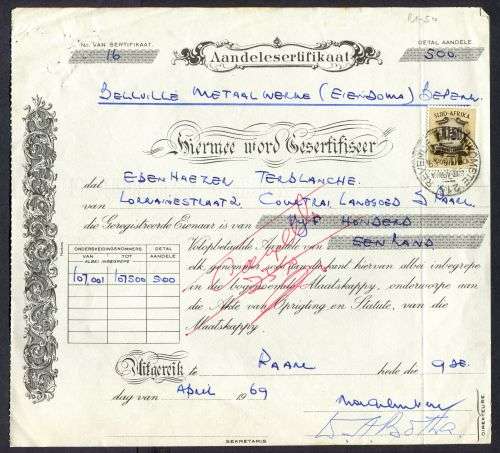 R1-50
No. VAN SERTIFIKAAT
DETAL AANDELE
16
Aandelesertifikaat
500.
BELLVILLE METAALWERKE (EIENDOMS) BEPERK
SUID-AFRIKA
Hiermee word Gesertifiseer
dat EBENHAEZER TERBLANCHE.
van LORRAINESTRAAT 2 COURTRAI LANDGOED S PAARL
die Geregistreerde Eienaar is van VYF HONDERD
Volopbetaalde Aandele van EEN RAND
ONDERSKEIDINGSNOMMERS DETAL
VAN TOT AANDELE
ALBEI INBEGREPE
107001 107500 500
elk, genommer soos aan die kant hiervan, albei inbegrepe
in die bogenoemde Maatskappy, onderworpe aan
die Akte van Oprigting en Statute, van die
Maatskappy.
Uitgereik te PAARL hede die 9 DE
dag van April 1969
DIREKTEURE
SEKRETARIS